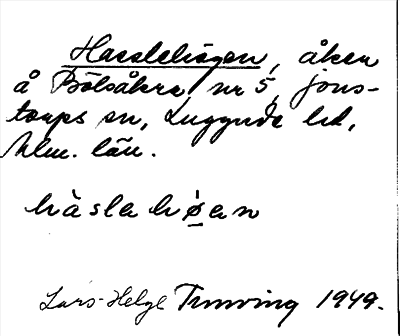 Hasslehögen, åker
å Bölsåkra nr 5, Jons-
torps sn, Luggude hd,
Mlm. län.
hàslehø̱an
Lars-Helge Trinving 1949.